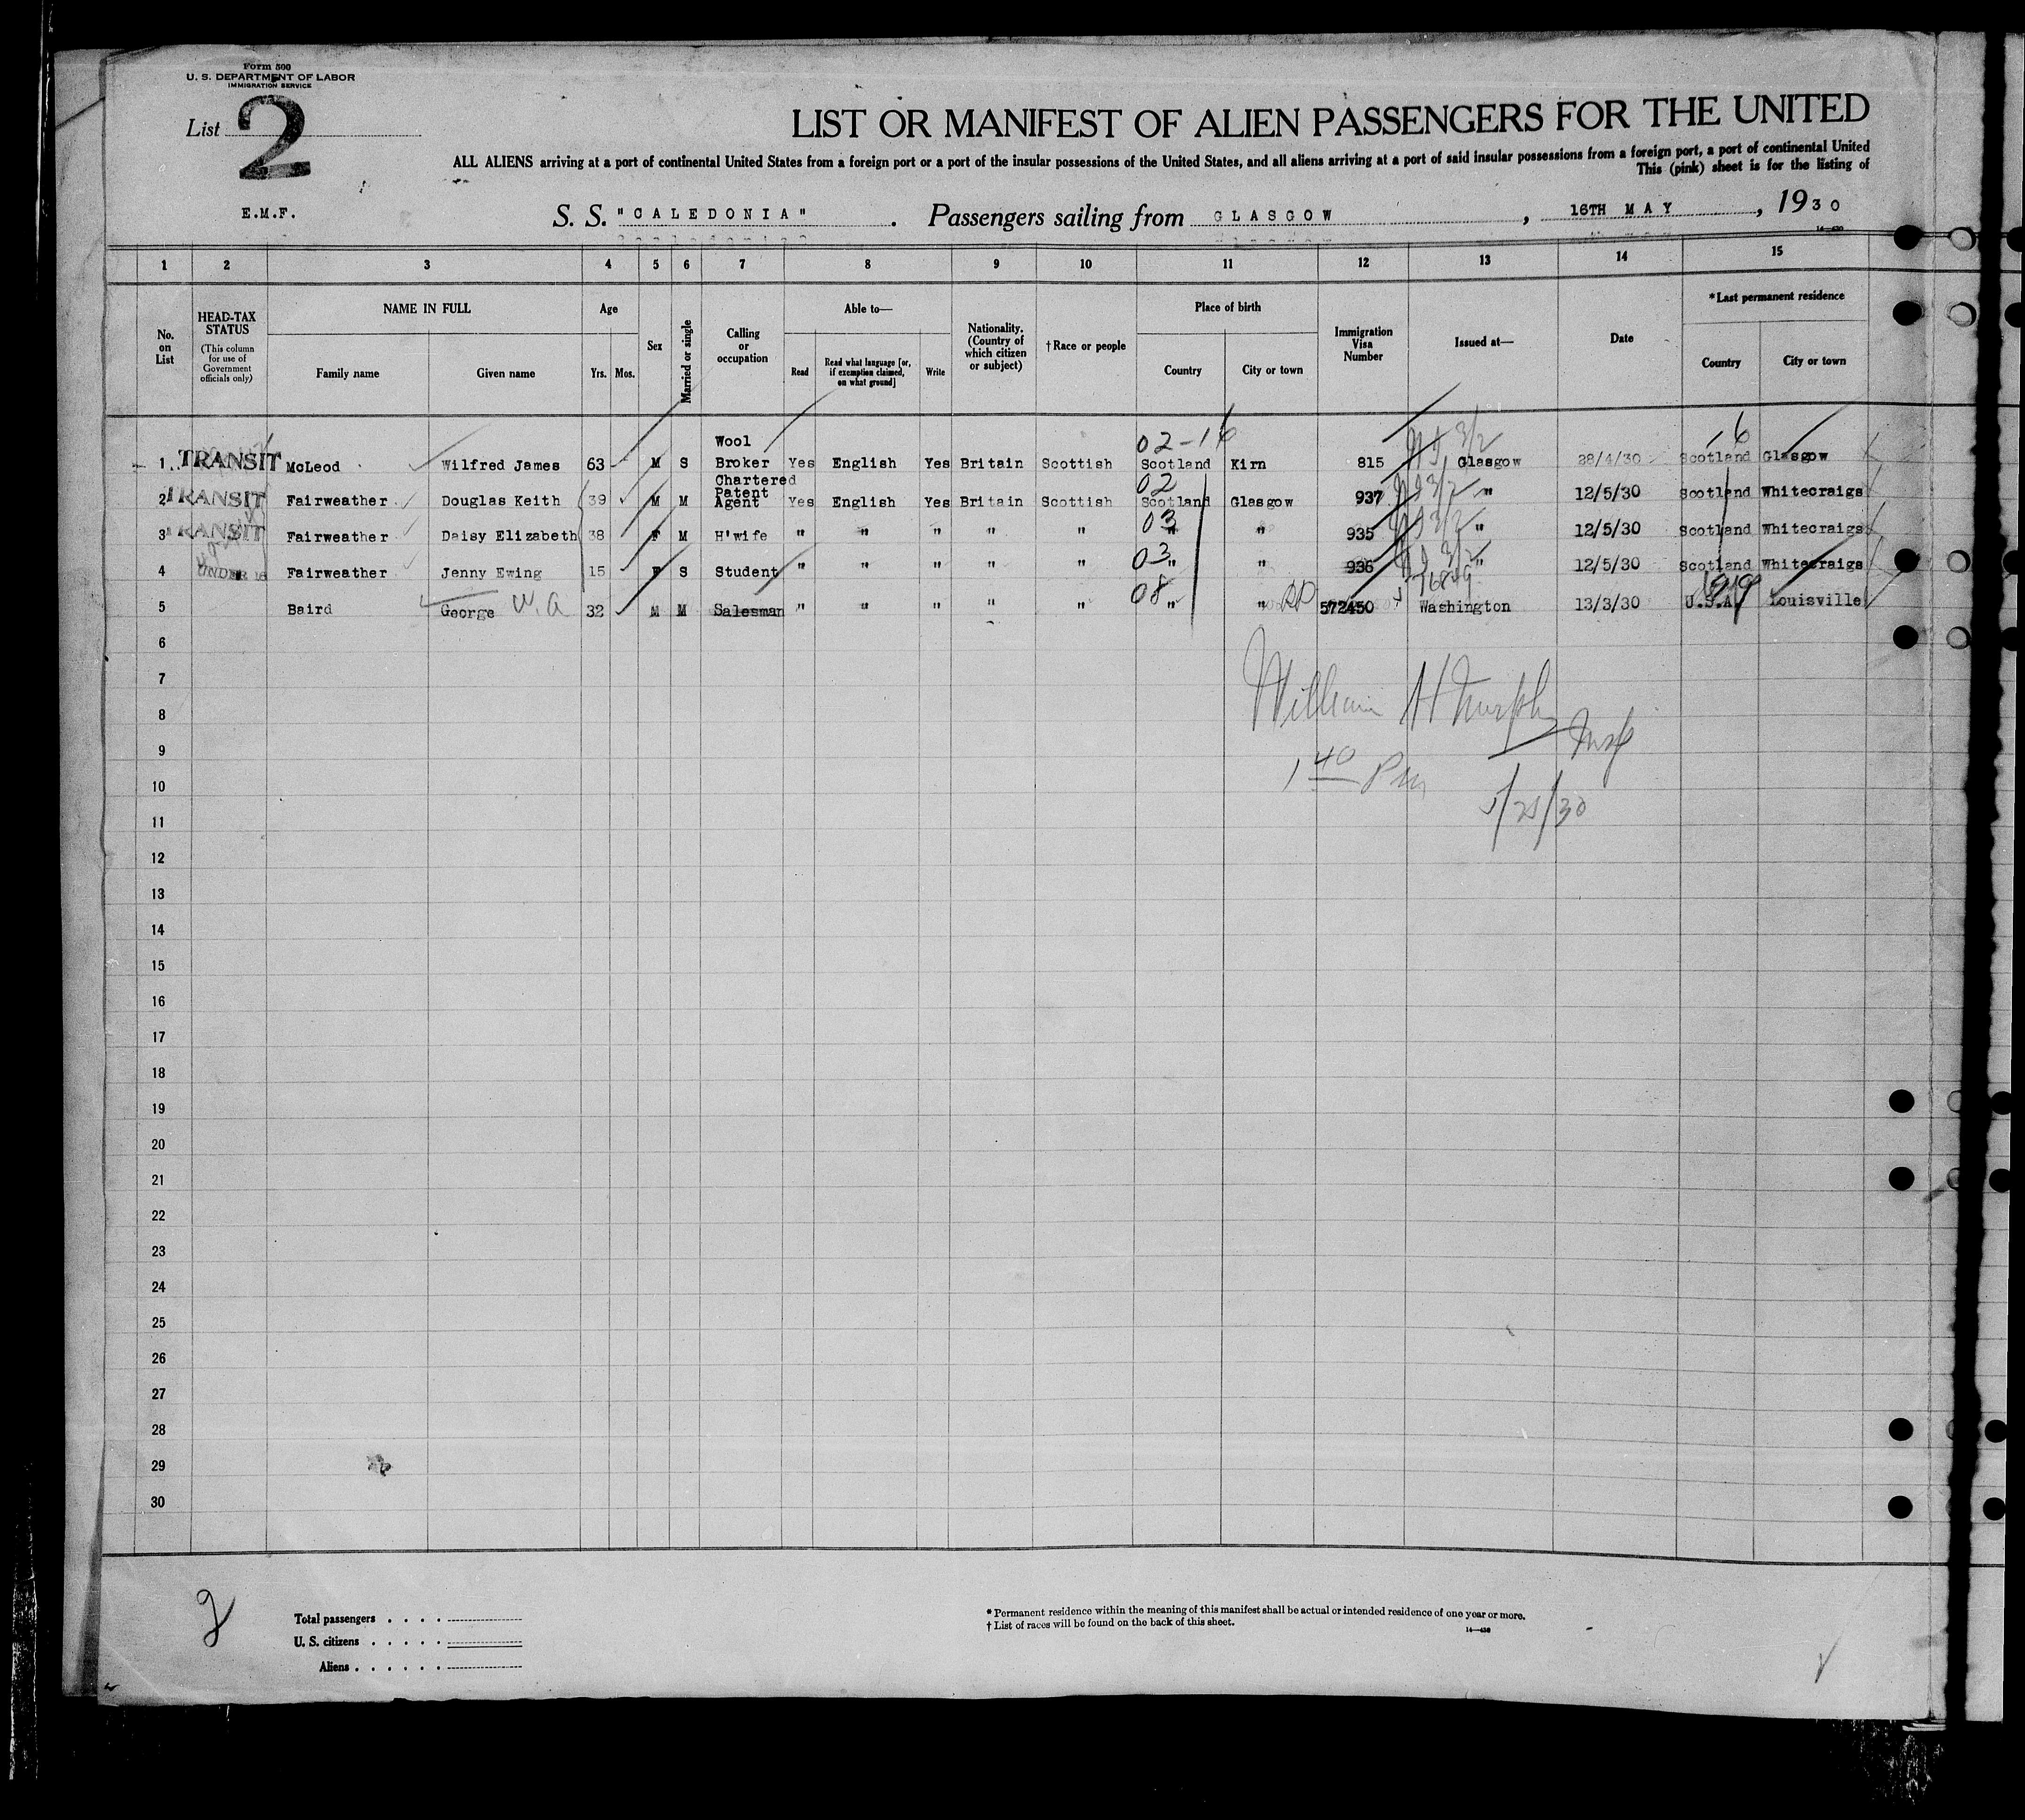 Form 500
U. S. DEPARTMENT OF LABOR
IMMIGRATION SERVICE
List 2
LIST OR MANIFEST OF ALIEN PASSENGERS FOR THE UNITED
ALL ALIENS arriving at a port of continental United States from a foreign port or a port of the insular possessions of the United States, and all aliens arriving at a port of said insular possessions from a foreign port, a port of continental United
This (pink) sheet is for the listing of
E.M.F.
S. S. "CALEDONIA". Passengers sailing from GLASGOW, 16TH MAY, 1930
1 2 3 4 5 6 7 8 9 10 11 12 13 14 15
No. on List
HEAD-TAX STATUS (This column for use of Government officials only)
NAME IN FULL
Family name Given name
Age
Yrs. Mos.
Sex
Married or single
Calling or occupation
Able to—
Read
Read what language [or, if exemption claimed, on what ground]
Write
Nationality. (Country of which citizen or subject)
†Race or people
Place of birth
Country City or town
Immigration Visa Number
Issued at—
Date
*Last permanent residence
Country City or town
02-16
1 TRANSIT McLeod Wilfred James 63 M S Wool Broker Yes English Yes Britain Scottish Scotland Kirn 815 Glasgow 28/4/30 Scotland Glasgow
02
2 TRANSIT Fairweather Douglas Keith 39 M M Chartered Patent Agent Yes English Yes Britain Scottish Scotland Glasgow 937 " 12/5/30 Scotland Whitecraigs
03
3 TRANSIT Fairweather Daisy Elizabeth 38 F M H'wife " " " " " " " 935 " 12/5/30 Scotland Whitecraigs
03
4 UNDER 16 Fairweather Jenny Ewing 15 F S Student " " " " " " " 936 " 12/5/30 Scotland Whitecraigs
08
5 Baird George W.A 32 M M Salesman " " " " " " " RP 572450 Washington 13/3/30 U.S.A. Louisville
6
7
William H Murphy
8
Insp
9
1 40 Pm
10
5/25/30
11
12
13
14
15
16
17
18
19
20
21
22
23
24
25
26
27
28
29
30
2
Total passengers
U. S. citizens
Aliens
* Permanent residence within the meaning of this manifest shall be actual or intended residence of one year or more.
† List of races will be found on the back of this sheet.
14—430